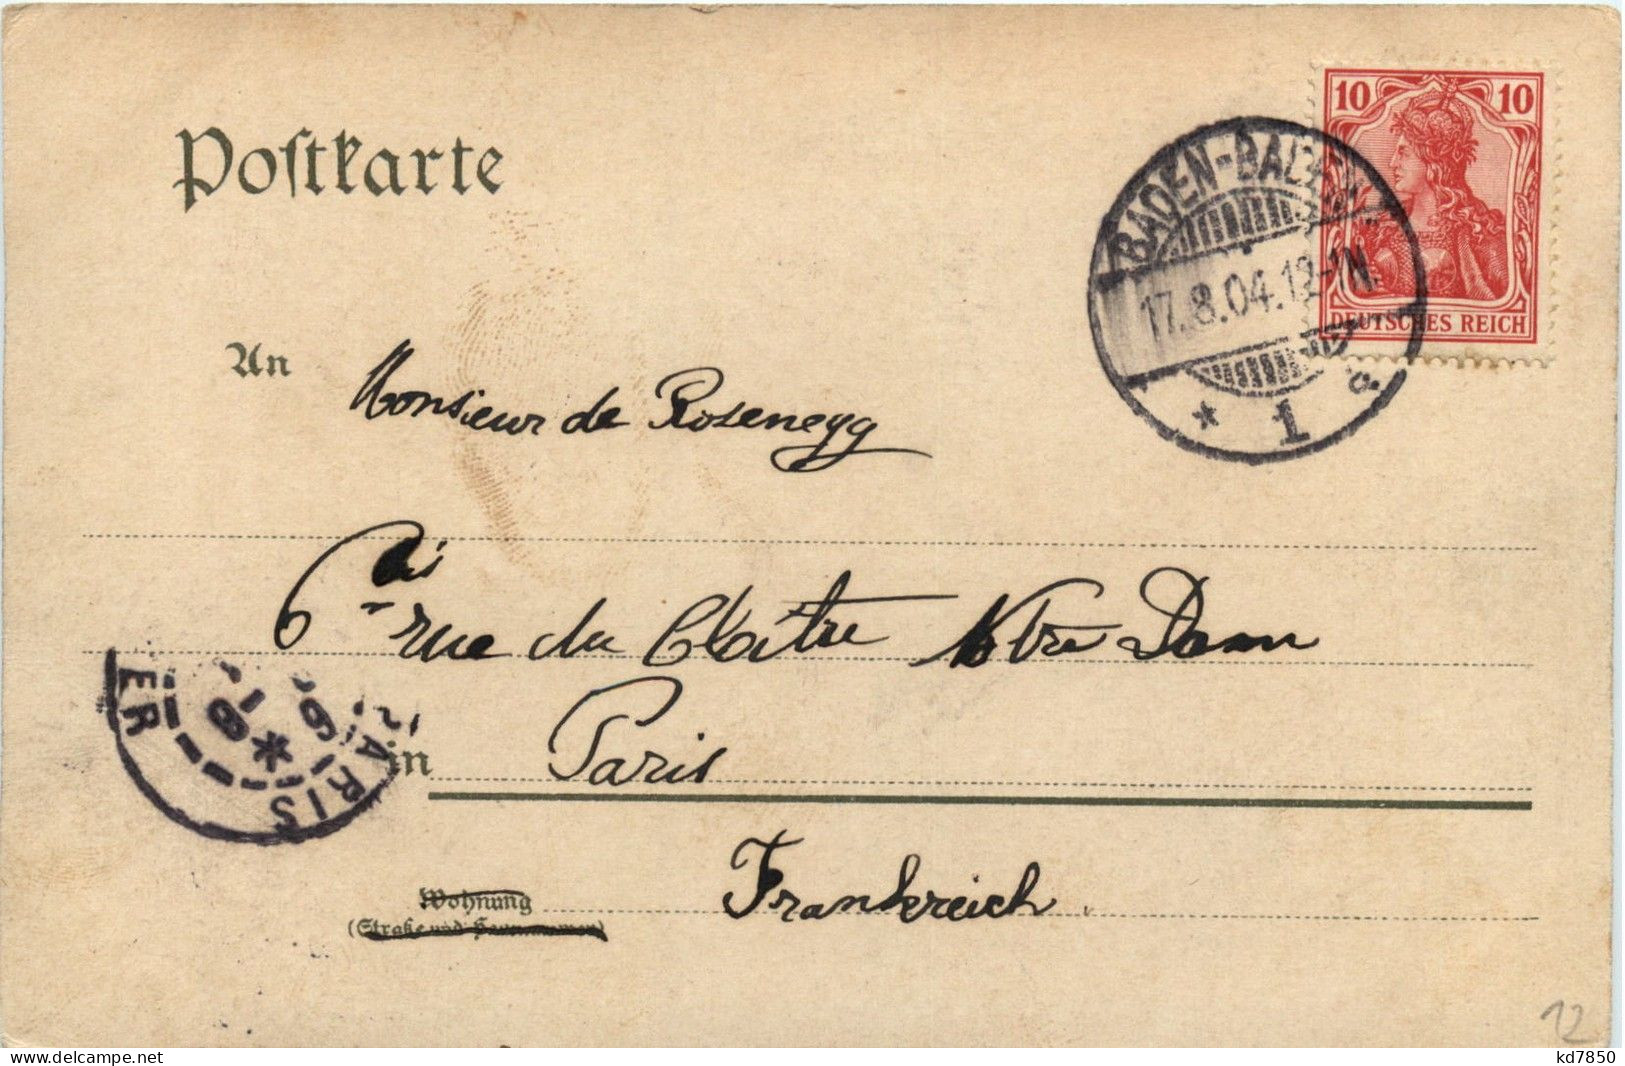 Postkarte
10 10
DEUTSCHES REICH
BADEN-BADEN
17.8.04.12-1N.
* 1 a.
An Monsieur de Rosenegg
6 bis rue du Cloitre Notre Dam
in Paris
PARIS
ER
Frankreich
Wohnung
(Straße und Hausnummer)
12
kd7850